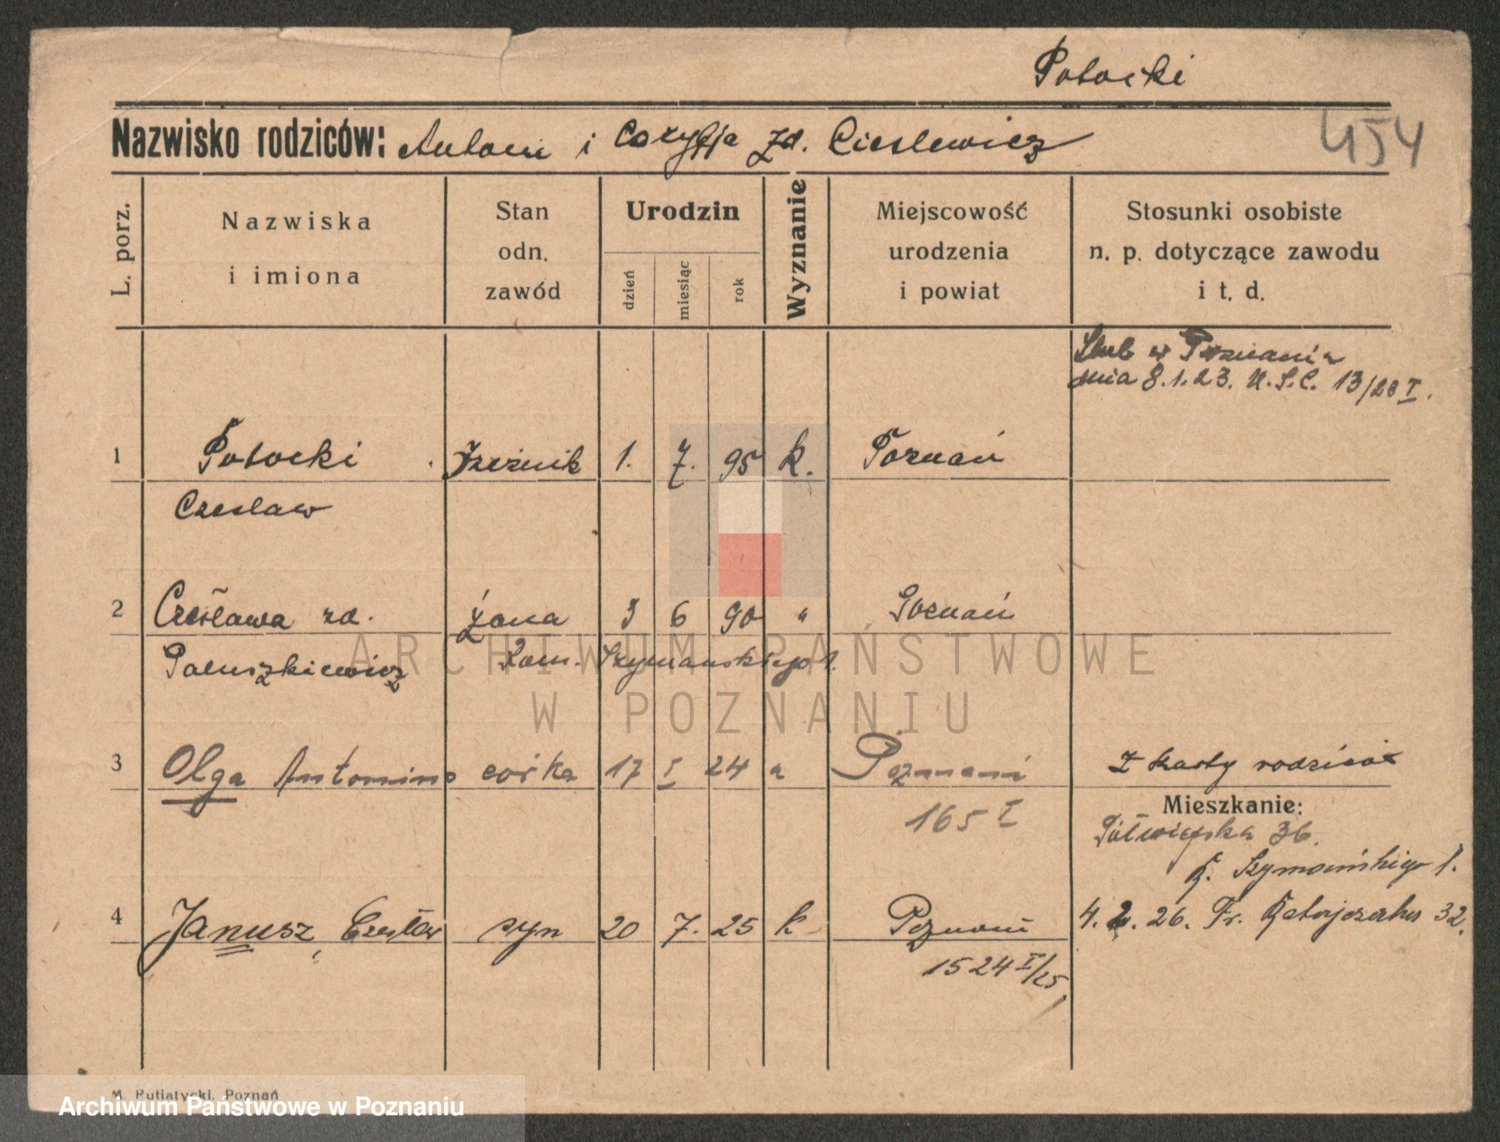 Potocki
Nazwisko rodziców: Antoni i zd. Cieslewicz
454
L. porz.
Nazwiska
i imiona
Stan
odn.
zawód
Urodzin
dzień
miesiąc
rok
Wyznanie
Miejscowość
urodzenia
i powiat
Stosunki osobiste
n. p. dotyczące zawodu
i t. d.
Ślub w Poznaniu
dnia 8.1.23. U.S.C. 13/23 I.
1 Potocki Rzeźnik 1. 7. 95 k. Poznań
Czesław
2 Czesława zd. żona 3 6 90 " Poznań
Paluszkiewicz Szymańskiego 1.
3 Olga Antonina córka 17 I 24 " Poznań Z karty rodziców
165 I
Mieszkanie:
Półwiejska 36.
Szymańskiego 1.
4 Janusz, Czesław syn 20 7. 25 k Poznań 4. 2. 26. Fr. Ratajczaka 32.
1524 I/25
M. Putiatycki, Poznań
ARCHIWUM PAŃSTWOWE
W POZNANIU
Archiwum Państwowe w Poznaniu